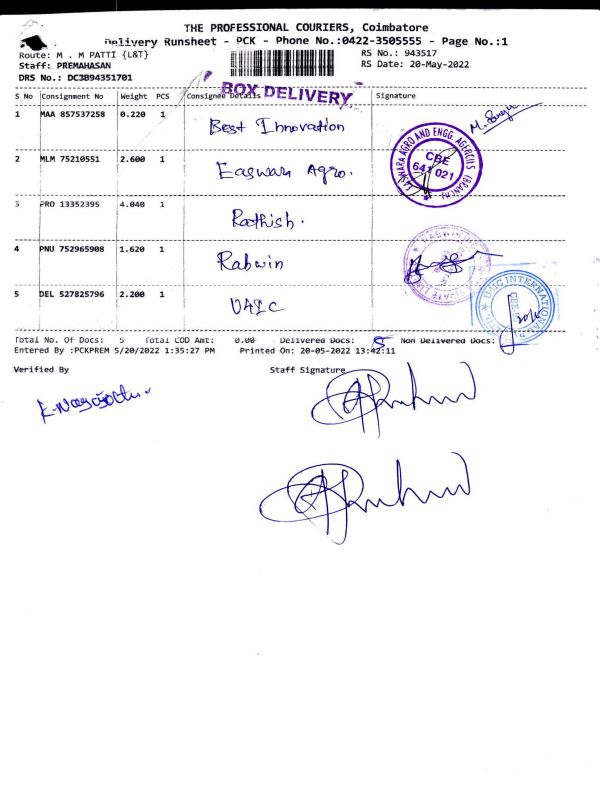 THE PROFESSIONAL COURIERS, Coimbatore
Delivery Runsheet - PCK - Phone No.:0422-3505555 - Page No.:1
Route: M . M PATTI {L&T} RS No.: 943517
Staff: PREMAHASAN RS Date: 20-May-2022
DRS No.: DC3B94351701
BOX DELIVERY
S No Consignment No Weight PCS Consignee Details Signature
1 MAA 857537258 0.220 1 Best Innovation
2 MLM 75210551 2.600 1 Easwara Agro.
EASWARA AGRO AND ENGG. AGENCIES (BRANCH)
CBE
641 021
3 PRO 13352395 4.040 1 Rathish.
4 PNU 752965908 1.620 1 Rabwin
5 DEL 527825796 2.200 1
INTERNATIONAL
Total No. Of Docs: 5 Total COD Amt: 0.00 Delivered Docs: 5 Non Delivered Docs:
Entered By :PCKPREM 5/20/2022 1:35:27 PM Printed On: 20-05-2022 13:42:11
Verified By Staff Signature